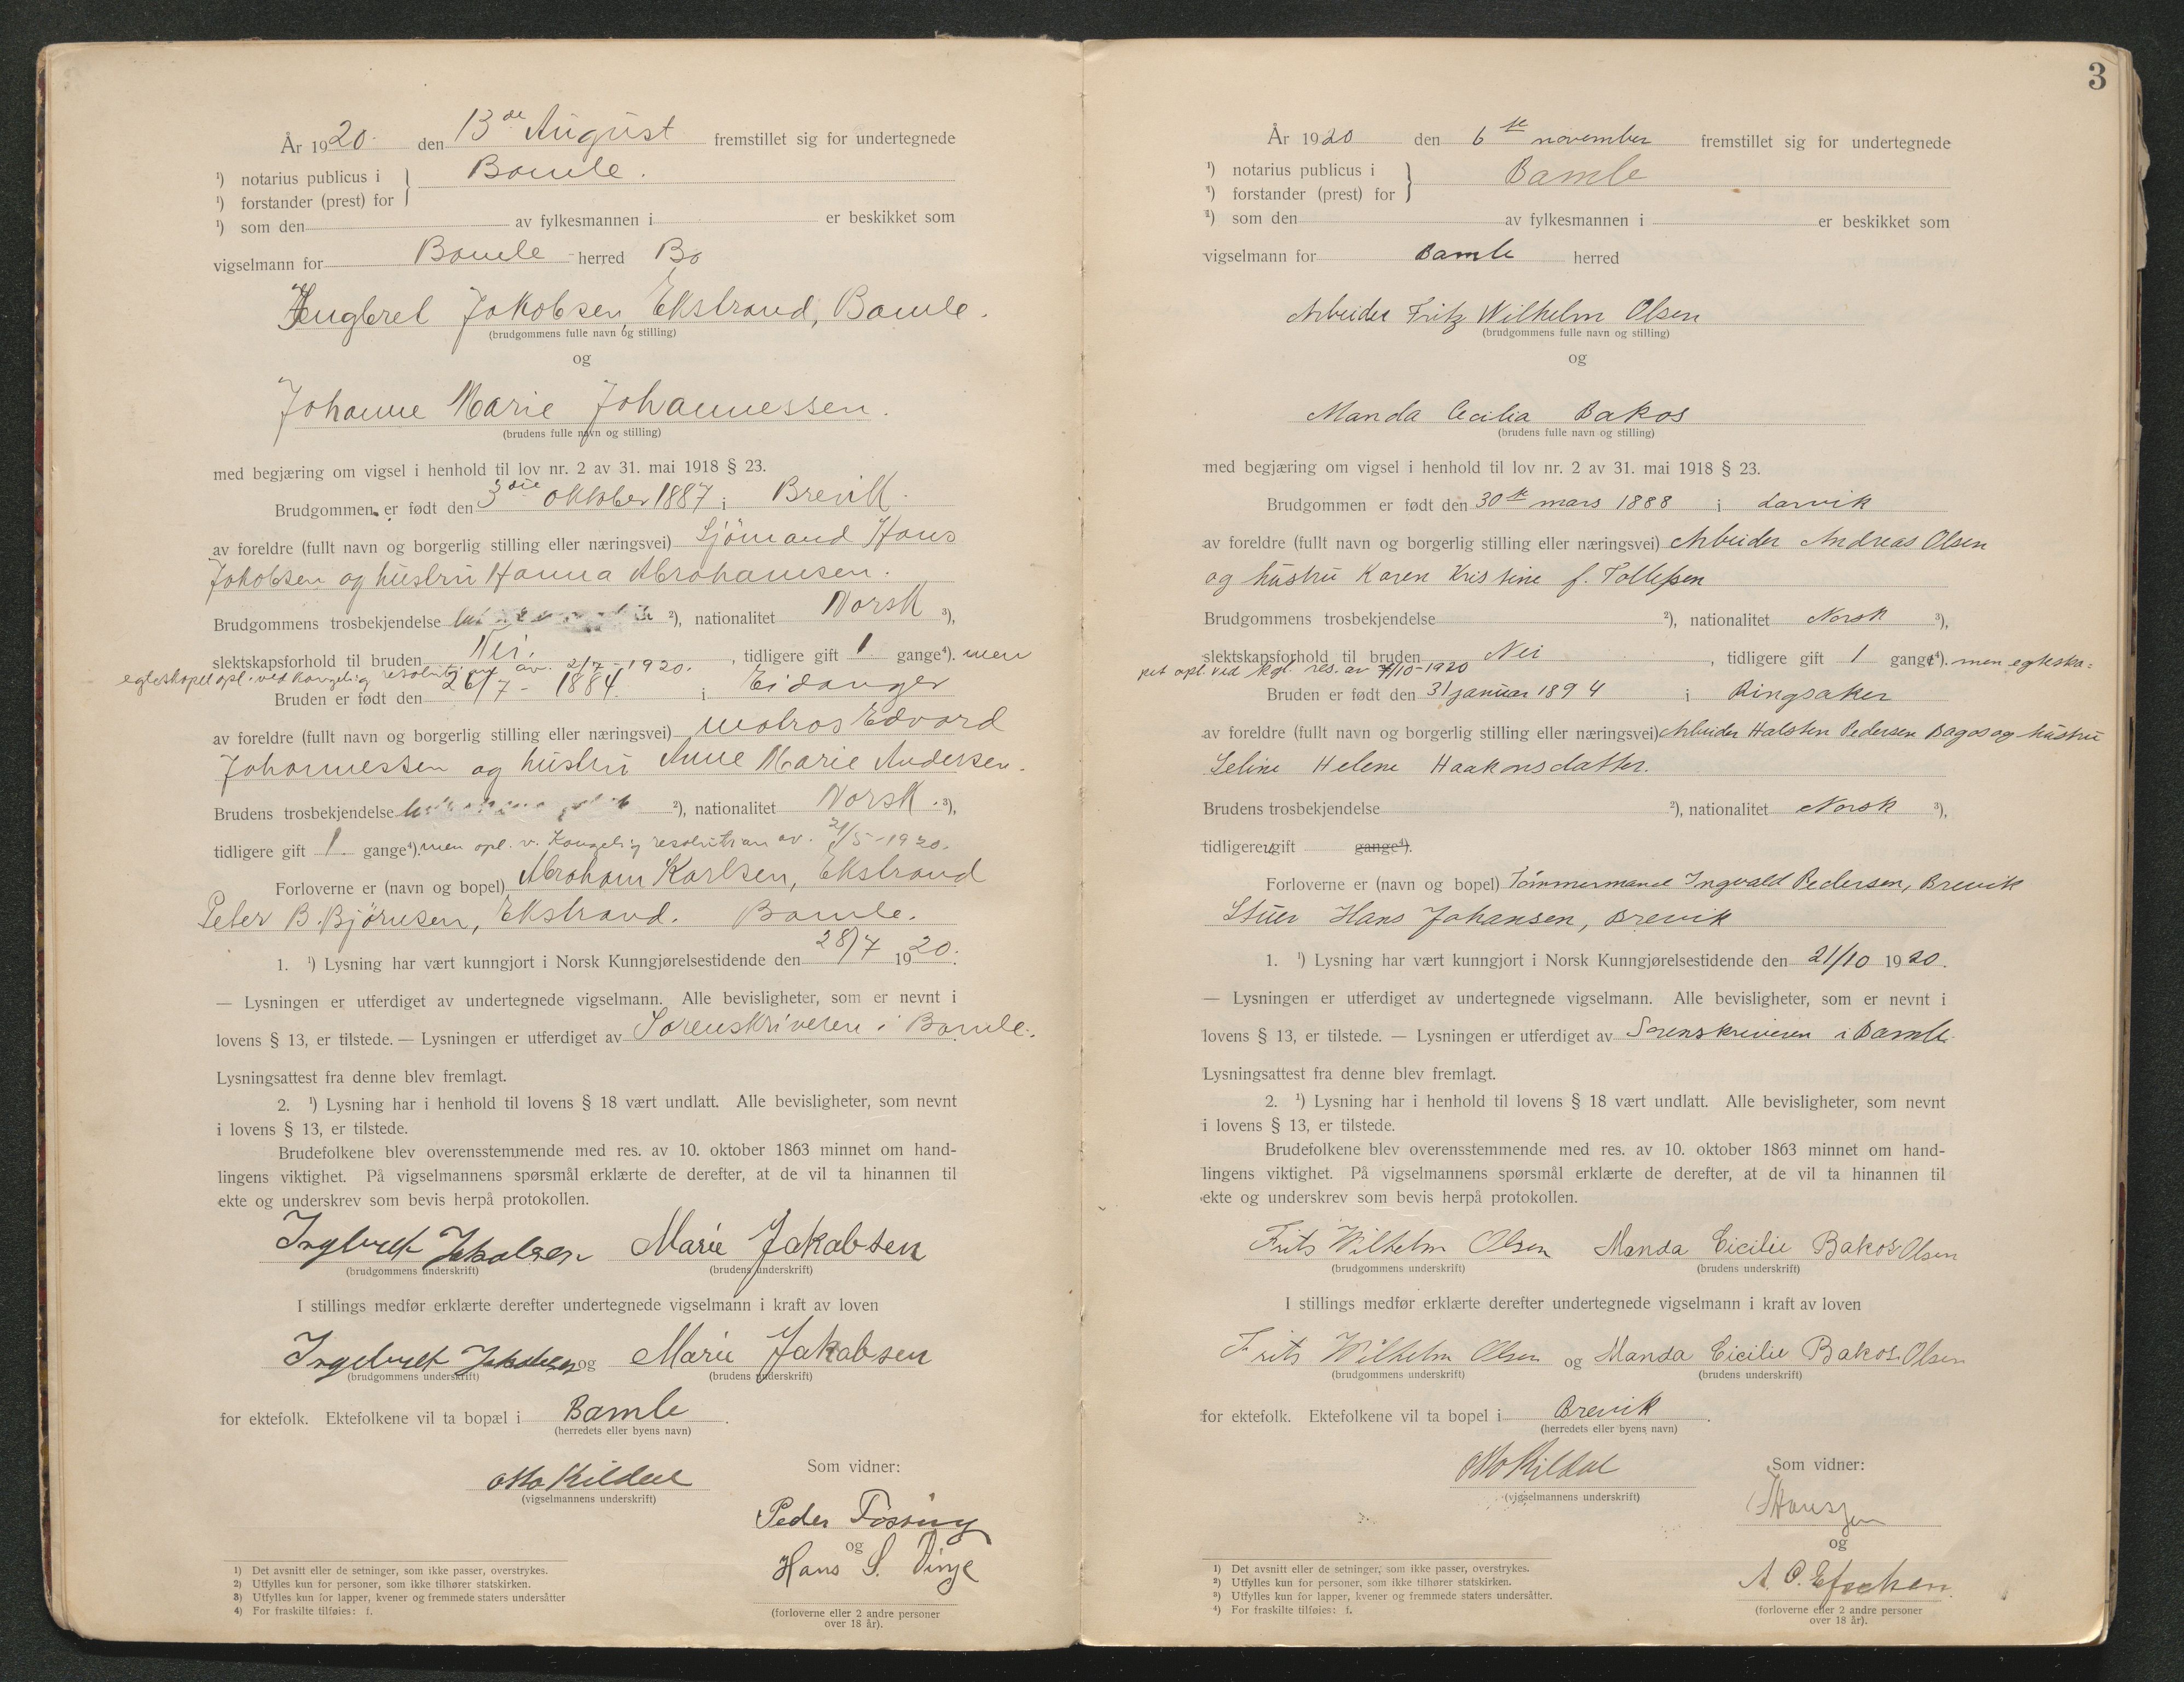 År 1920 den 13de August fremstillet sig for undertegnede
¹) notarius publicus i } Bamle.
¹) forstander (prest) for
¹) som den av fylkesmannen i er beskikket som
vigselmann for Bamle herred Ba
Engbret Jakobsen, Ekstrand, Bamle.
(brudgommens fulle navn og stilling)
og
Johanne Marie Johannessen.
(brudens fulle navn og stilling)
med begjæring om vigsel i henhold til lov nr. 2 av 31. mai 1918 § 23.
Brudgommen er født den 3die oktober 1887 i Brevik.
av foreldre (fullt navn og borgerlig stilling eller næringsvei) Sjömand Hans
Jakobsen og hustru Hanna Abrahamsen.
Brudgommens trosbekjendelse ²), nationalitet Norsk ³),
slektskapsforhold til bruden Nei. , tidligere gift 1 gange⁴). men
egteskapet opl. ved kongelig resolution av. 2/7-1920.
Bruden er født den 26/7 - 1884 i Eidanger
av foreldre (fullt navn og borgerlig stilling eller næringsvei) matros Edvard
Johannessen og hustru Anne Marie Andersen.
Brudens trosbekjendelse ²), nationalitet Norsk. ³),
tidligere gift 1 gange⁴). men opl. v. Kongelig resolution av. 21/5-1920.
Forloverne er (navn og bopel) Abraham Karlsen, Ekstrand
Peter B. Bjørnsen, Ekstrand. Bamle.
1. ¹) Lysning har vært kunngjort i Norsk Kunngjørelsestidende den 28/7 1920.
— Lysningen er utferdiget av undertegnede vigselmann. Alle bevisligheter, som er nevnt i
lovens § 13, er tilstede. — Lysningen er utferdiget av Sorenskriveren i Bamle.
Lysningsattest fra denne blev fremlagt.
2. ¹) Lysning har i henhold til lovens § 18 vært undlatt. Alle bevisligheter, som nevnt
i lovens § 13, er tilstede.
Brudefolkene blev overensstemmende med res. av 10. oktober 1863 minnet om hand-
lingens viktighet. På vigselmannens spørsmål erklærte de derefter, at de vil ta hinannen til
ekte og underskrev som bevis herpå protokollen.
Ingbrelt Jakobsen Marie Jakabsen
(brudgommens underskrift) (brudens underskrift)
I stillings medfør erklærte derefter undertegnede vigselmann i kraft av loven
Ingebrelt Jakobsen og Marie Jakabsen
(brudgommens underskrift) (brudens underskrift)
for ektefolk. Ektefolkene vil ta bopæl i Bamle.
(herredets eller byens navn)
Otto Kildal
(vigselmannens underskrift)
Som vidner:
Peder Fossing
og
Hans S. Vinje
(forloverne eller 2 andre personer
over 18 år).
1) Det avsnitt eller de setninger, som ikke passer, overstrykes.
2) Utfylles kun for personer, som ikke tilhører statskirken.
3) Utfylles kun for lapper, kvener og fremmede staters undersåtter
4) For fraskilte tilføies: f.
3
År 1920 den 6te november fremstillet sig for undertegnede
¹) notarius publicus i } Bamle
¹) forstander (prest) for
¹) som den av fylkesmannen i er beskikket som
vigselmann for Bamle herred
Arbeider Fritz Wilhelm Olsen
(brudgommens fulle navn og stilling)
og
Manda Cecilia Bakos
(brudens fulle navn og stilling)
med begjæring om vigsel i henhold til lov nr. 2 av 31. mai 1918 § 23.
Brudgommen er født den 30te mars 1888 i Larvik
av foreldre (fullt navn og borgerlig stilling eller næringsvei) Arbeider Andreas Olsen
og hustru Karen Kristine f. Tollefsen
Brudgommens trosbekjendelse ²), nationalitet Norsk ³),
slektskapsforhold til bruden Nei , tidligere gift 1 gange⁴). men egteska=
pet opl. ved kgl. res. av 7/10-1920
Bruden er født den 31 januar 1894 i Ringsaker
av foreldre (fullt navn og borgerlig stilling eller næringsvei) Arbeider Halsten Pedersen Bagos og hustru
Seline Helene Haakonsdatter.
Brudens trosbekjendelse ²), nationalitet Norsk ³),
tidligere ugift gange⁴).
Forloverne er (navn og bopel) Tömmermand Ingvald Pedersen, Brevik
Stuer Hans Johansen, Brevik
1. ¹) Lysning har vært kunngjort i Norsk Kunngjørelsestidende den 21/10 1920.
— Lysningen er utferdiget av undertegnede vigselmann. Alle bevisligheter, som er nevnt i
lovens § 13, er tilstede. — Lysningen er utferdiget av Sorenskriveren i Bamle.
Lysningsattest fra denne blev fremlagt.
2. ¹) Lysning har i henhold til lovens § 18 vært undlatt. Alle bevisligheter, som nevnt
i lovens § 13, er tilstede.
Brudefolkene blev overensstemmende med res. av 10. oktober 1863 minnet om hand-
lingens viktighet. På vigselmannens spørsmål erklærte de derefter, at de vil ta hinannen til
ekte og underskrev som bevis herpå protokollen.
Frits Wilhelm Olsen Manda Cicilie Bakos Olsen
(brudgommens underskrift) (brudens underskrift)
I stillings medfør erklærte derefter undertegnede vigselmann i kraft av loven
Frits Wilhelm Olsen og Manda Cicilie Bakos Olsen
(brudgommens underskrift) (brudens underskrift)
for ektefolk. Ektefolkene vil ta bopel i Brevik.
(herredets eller byens navn)
Otto Kildal
(vigselmannens underskrift)
Som vidner:
og
(forloverne eller 2 andre personer
over 18 år).
1) Det avsnitt eller de setninger, som ikke passer, overstrykes.
2) Utfylles kun for personer, som ikke tilhører statskirken.
3) Utfylles kun for lapper, kvener og fremmede staters undersåtter.
4) For fraskilte tilføies: f.